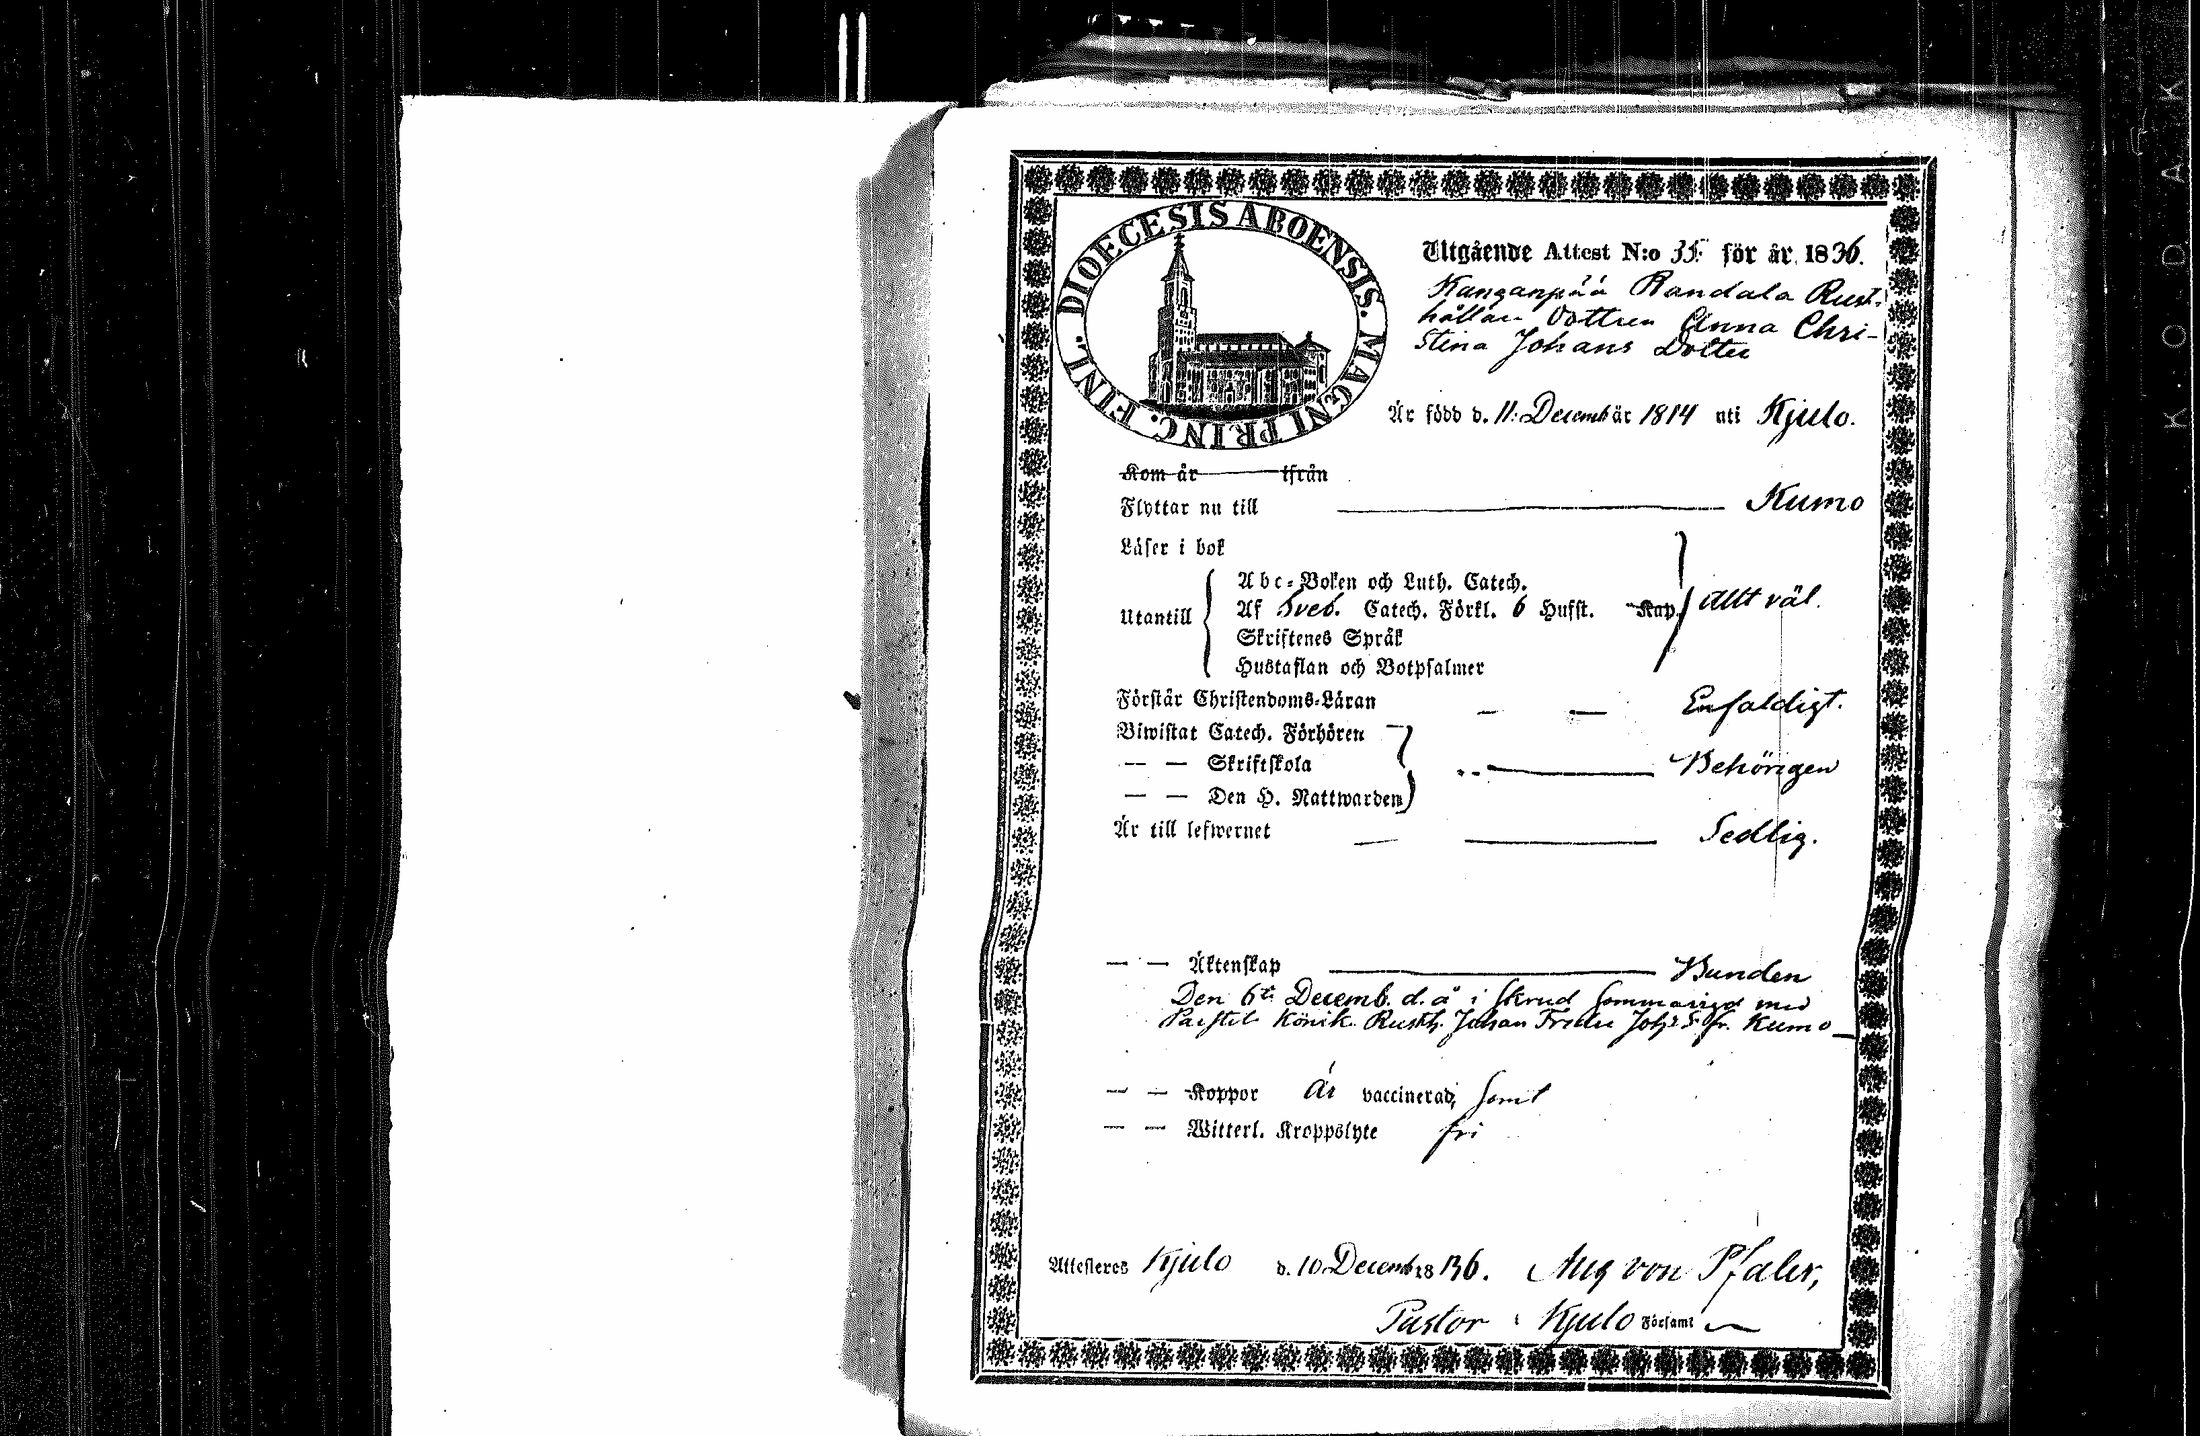 DIOECESIS ABOENSIS. MAGNI PRINC. FINL.
Utgående Attest N:o 35 för år 1836.
Kanganpää Randala Rust-
hållare Dottren Anna Chri-
stina Johans Dotter
Är född d. 11: Decemb är 1814 uti Kjulo.
Kom år ifrån
Flyttar nu till Kumo
Läser i bok
Abc-Boken och Luth. Catech.
Utantill Af Sveb. Catech. Förkl. 6 Hufst. Kap. Allt väl.
Skriftenes Språk
Hustaflan och Botpsalmer
Förstår Christendoms-Läran — — Enfaldigt.
Biwistat Catech. Förhören
— — Skriftskola Behörigen
— — Den H. Nattwarden
Är till lefwernet — Sedlig.
— — Äktenskap Bunden
Den 6te Decemb. d. å i Skrud med
Könik. Rusth. Johan fr. Kumo
— — Koppor är vaccinerad, samt
— — Witterl. Kroppslyte fri
Attesteres Kjulo d. 10 Decemb 18 1836. Aug von Pfaler,
Pastor i Kjulo Församl
KODAK